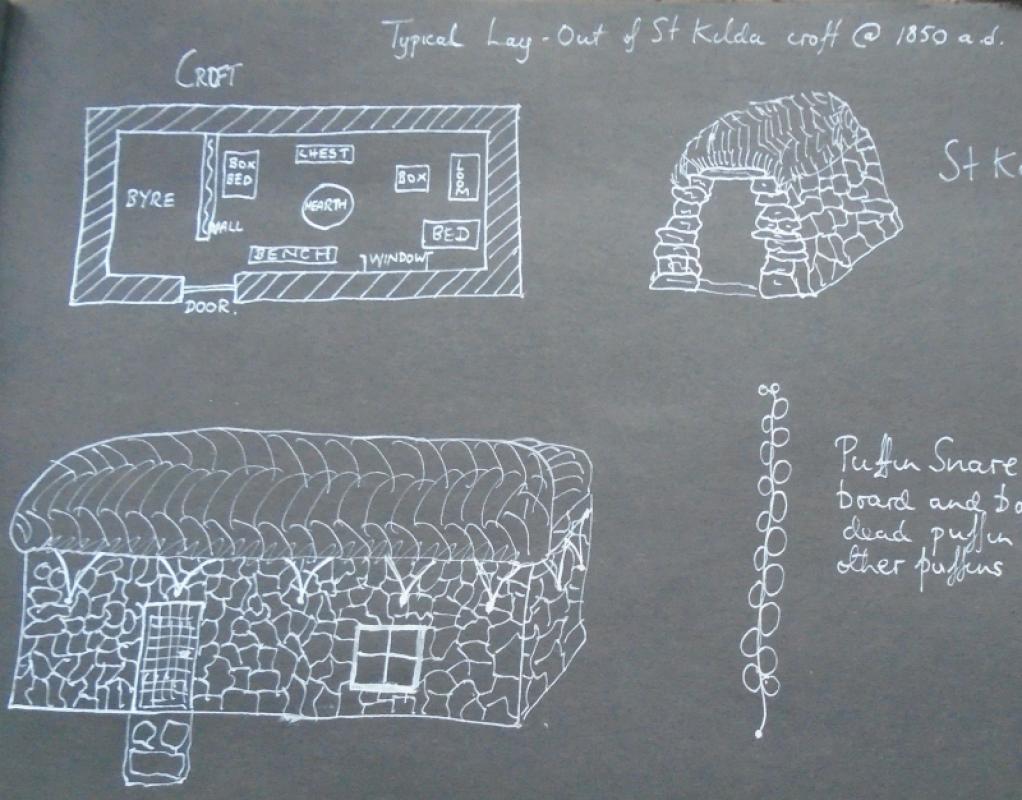 Typical Lay-Out of St Kilda croft @ 1850 a.d.
CROFT
BYRE
WALL
BOX
BED
CHEST
HEARTH
BOX
LOOM
BED
BENCH
WINDOW
DOOR.
St
Puffin Snare
board and
dead puffin
other puffins